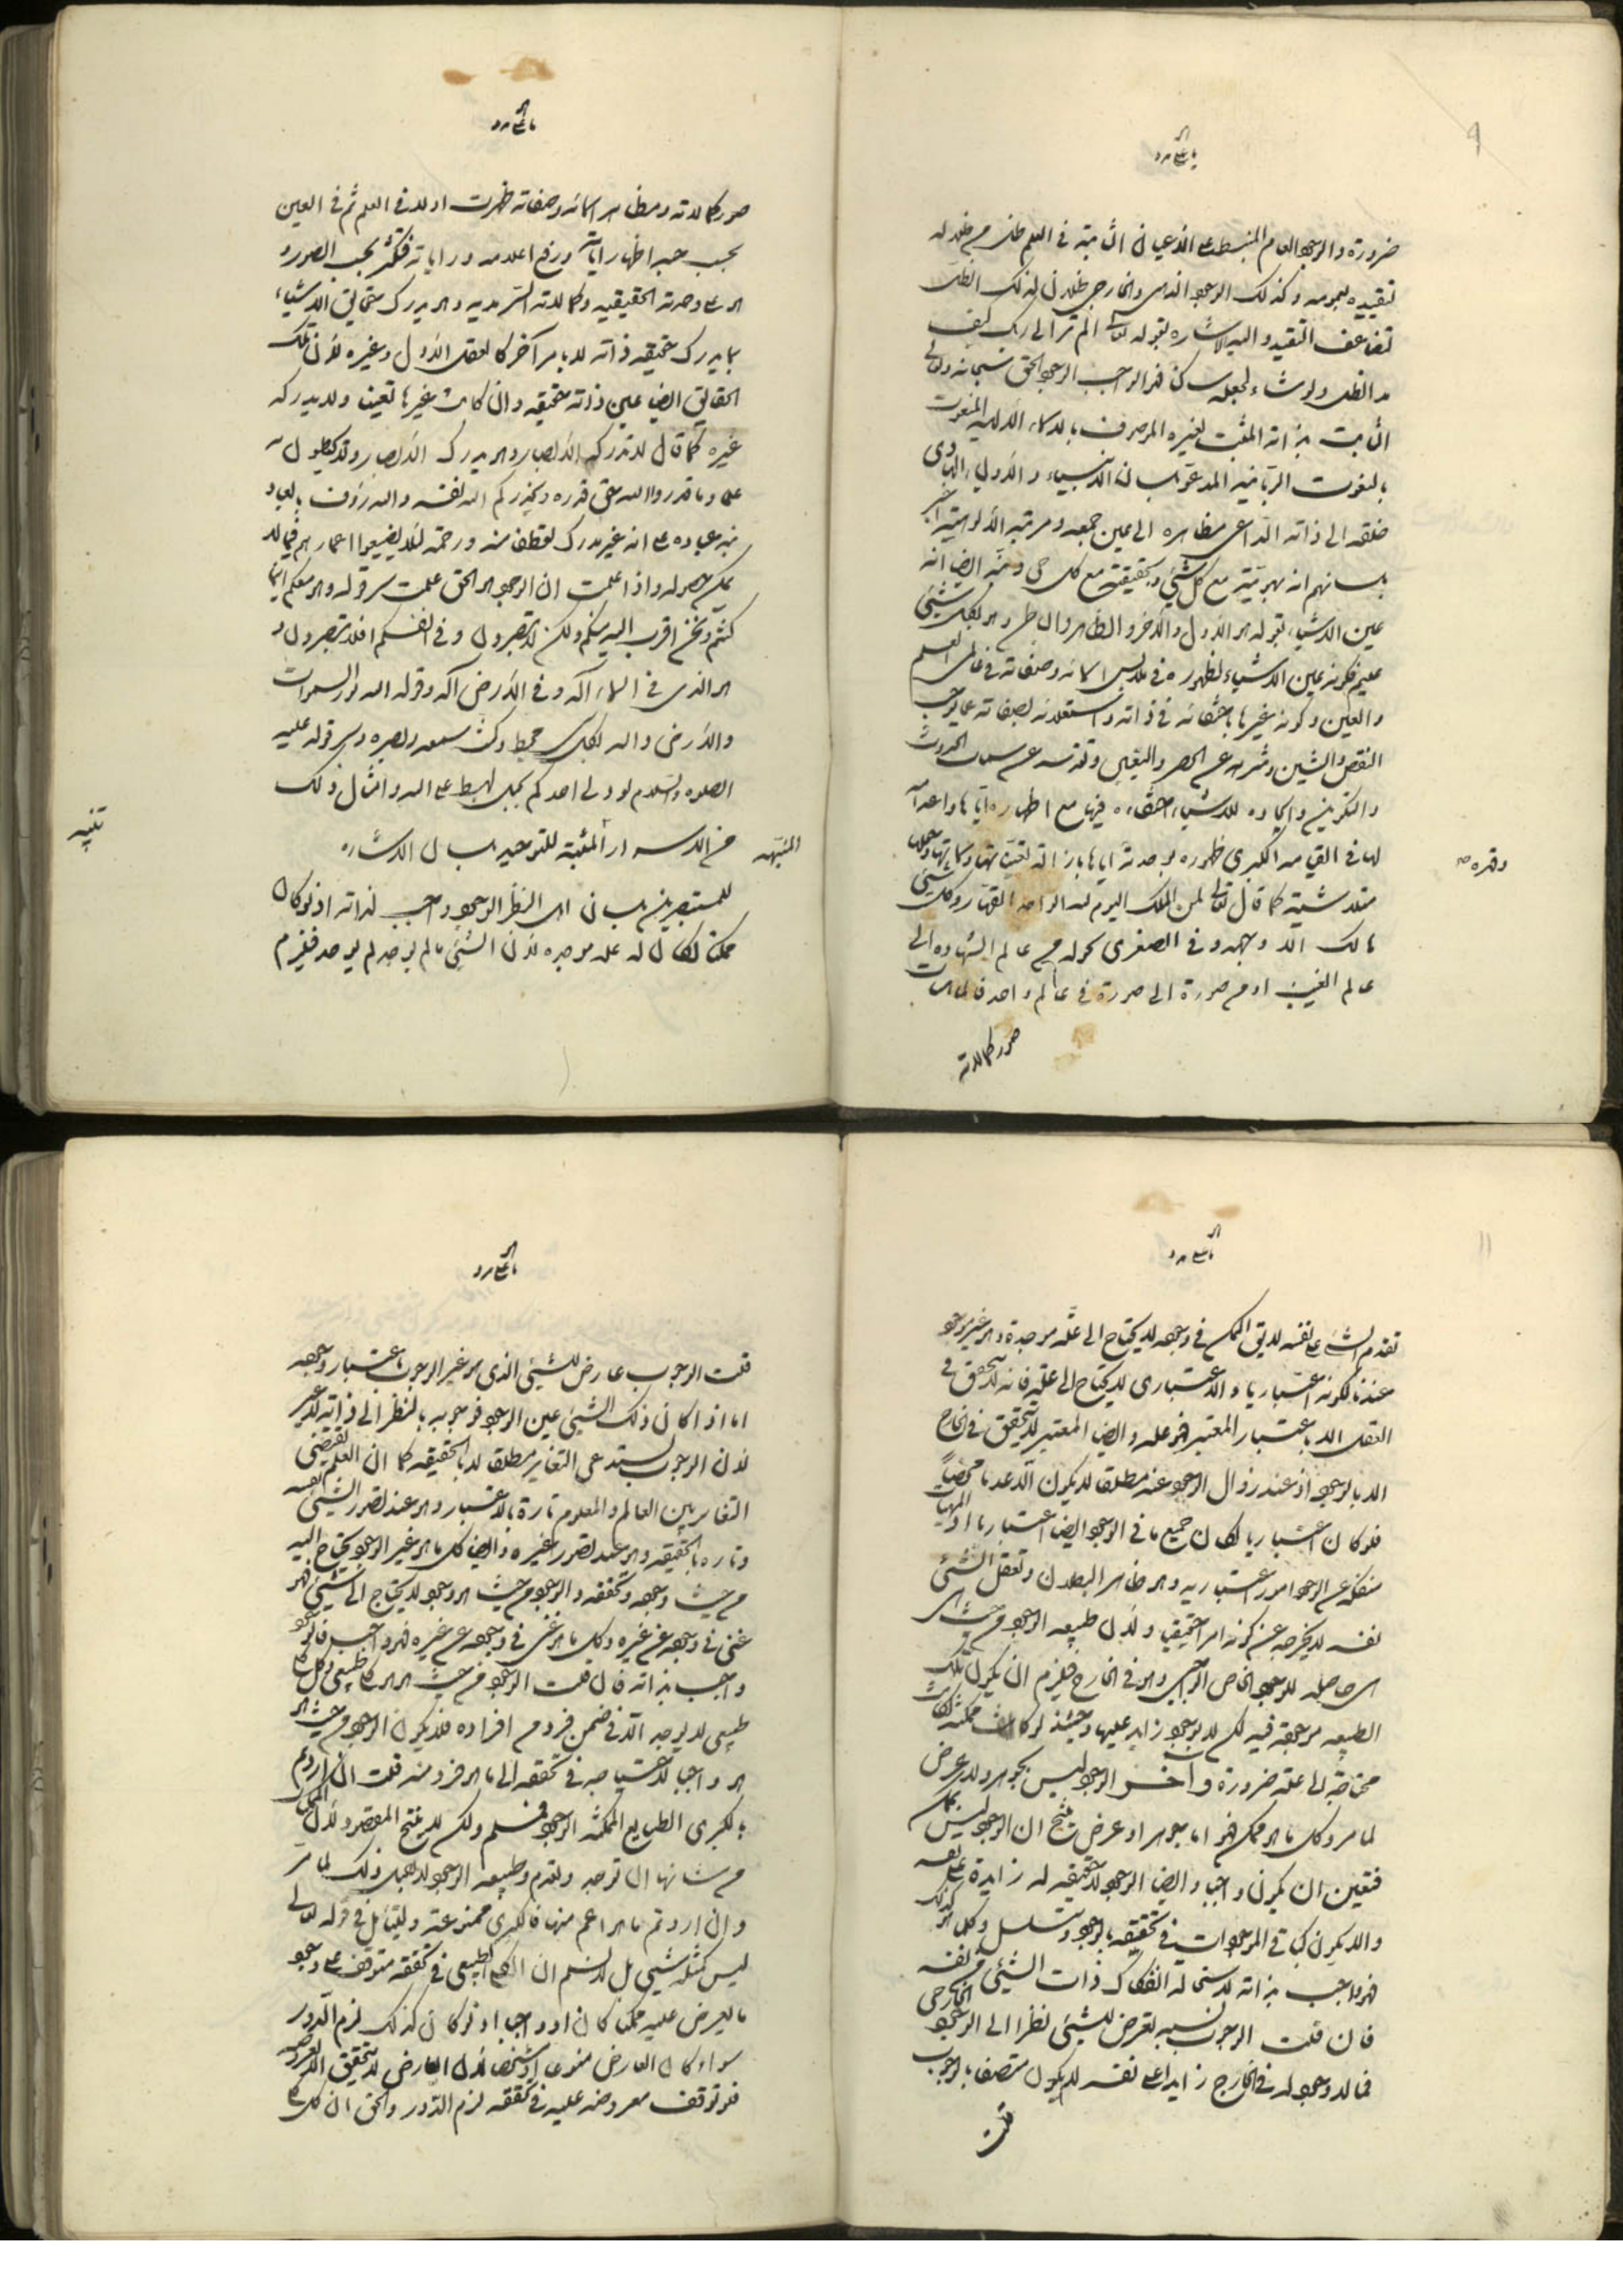 ضرورة والوجود العام المنبسط على الاعيان الثابتة في العلم ظل من ظلاله
لتقييده بعمومه وكذلك الوجود الذهني والخارجي ظلان لذلك الظل
لتضاعف التقييد واليه الاشاره بقوله تعالى الم تر الى ربك كيف
مد الظل ولو شاء لجعله ساكنا فهو الواجب الوجود الحق سبحانه وتعالى
الثابت بذاته المثبت لغيره الموصوف بالاسماء الالهيه المنعوت
بالنعوت الربانيه المدعو بلسان الانبياء والاولياء الهادي
خلقه الى ذاته الداعي مظاهره الى عين جمعه ومرتبه الالوهيته اخبر
بلسانهم انه بهويته مع كل شيء وبحقيقته مع كل حي ونبه ايضا انه
عين الاشياء بقوله هو الاول والاخر والظاهر والباطن وهو بكل شيء
عليم فكونه عين الاشياء لظهوره في ملابس اسمائه وصفاته في عالمي العلم
والعين وكونه غيرها باختفائه في ذاته واستعلائه بصفاته عما يوجب
النقص والشين وتنزهه عن الحصر والتعين وتقدسه عن سمات الحدوث
والتكوين وايجاده للاشياء اختفاءه فيها مع اظهاره اياها واعدامه
لها في القيامه الكبرى ظهوره بوحدته اياها بازالة تعيناتها وسماتها وجعلها
وقهره
متلاشية كما قال تعالى لمن الملك اليوم لله الواحد القهار وكل شيئ
هالك الا وجهه وفي الصغرى تحوله من عالم الشهاده الى
عالم الغيب او من صورة الى صورة في عالم واحد فالماهيات
صور كمالاته
صور كمالاته ومظاهر اسمائه وصفاته ظهرت اولا في العلم ثم في العين
بحسب حبه اظهار اياته ورفع اعلامه وراياته فتكثر بحسب الصور و
هو على وحدته الحقيقيه وكمالاته السرمديه وهو يدرك حقايق الاشياء
بما يدرك حقيقه ذاته لا بامر آخر كالعقل الاول وغيره لان تلك
الحقايق ايضا عين ذاته حقيقه وان كانت غيرها تعينا ولا يدركه
غيره كما قال لا تدركه الابصار وهو يدرك الابصار ولا يحيطون به
علما وما قدروا الله حق قدره ويحذركم الله نفسه والله رؤف بالعباد
نبه عباده على انه غير مدرك تعطفا منه ورحمة لئلا يضيعوا اعمارهم فيما لا
يمكن حصوله واذا علمت ان الوجود هو الحق علمت سر قوله وهو معكم اينما
كنتم ونحن اقرب اليه منكم ولكن لا تبصرون وفي انفسكم افلا تبصرون و
هو الذي في السماء اله وفي الارض اله وقوله الله نور السموات
والارض والله بكل شيء محيط وكنت سمعه وبصره وسر قوله عليه
الصلوه والسلام لو دليتم احدكم بحبل لهبط على الله وامثال ذلك
من الاسرار المثبتة للتوحيد بلسان الاشاره
المنبهة
تنبيه
للمستبصرين بلسان اهل النظر الوجود واجب لذاته اذ لو كان
ممكنا لكان له علة موجده لان الشيئ ما لم يوجد لم يوجد فيلزم
تقدم الشئ على نفسه لا يق الممكن في وجوده لا يحتاج الى علة موجدة وهو غير موجود
عندنا لكونه اعتباريا والاعتباري لا يحتاج الى علة فانه لا يتحقق في
العقل الا باعتبار المعتبر فهو علته وايضا المعتبر لا يتحقق في الخارج
الا بالوجود اذ عند زوال الوجود عنه مطلقا لا يكون الا عدما محضا
فلو كان اعتباريا لكان جميع ما في الوجود ايضا اعتباريا اذ الماهيات
منفكة عن الوجود امور اعتباريه وهو ظاهر البطلان وتعقل الشئ
نفسه لا يخرجه عن كونه امرا حقيقيا ولان طبيعه الوجود من حيث هي
هي حاصله للوجود الخاص الواجبي وهو في الخارج فيلزم ان يكون تلك
الطبيعه موجودة فيه لكن لا بوجود زايد عليها وحينئذ لو كانت ممكنة لكانت
محتاجة الى علة ضرورة واخر الوجود ليس بجوهر ولا عرض
لما مر وكل ما هو ممكن فهو اما جوهر او عرض ينتج ان الوجود ليس بممكن
فتعين ان يكون واجبا وايضا الوجود لا حقيقه له زايدة على نفسه
والا يكون كباقي الموجودات في تحققه بالوجود وتسلسل وكل ما هو كذلك
فهو واجب بذاته لاستحاله انفكاك ذات الشيئ عن نفسه
فان قلت الوجوب نسبه تعرض للشيئ نظرا الى الوجود الخارجي
فما لا وجود له في الخارج زايدا على نفسه لا يكون متصفا بالوجوب
قلت
قلت الوجوب عارض للشيئ الذي هو غير الوجود باعتبار وجوده
اما اذا كان ذلك الشيئ عين الوجود فوجوبه بالنظر الى ذاته لا غير
لان الوجوب يستدعي التغاير مطلقا لا بالحقيقه كما ان العلم يقتضي
التغاير بين العالم والمعلوم تارة بالاعتبار وهو عند تصور الشيئ نفسه
وتاره بالحقيقه وهو عند تصوره غيره وايضا كل ما هو غير الوجود يحتاج اليه
من حيث وجوده وتحققه والوجود من حيث هو وجود لا يحتاج الى شيئ فهو
غني في وجوده عن غيره وكل ما هو غني في وجوده عن غيره فهو واجب فالوجود
واجب بذاته فان قلت الوجود من حيث هو هو كلي طبيعي وكل كلي
طبيعي لا يوجد الا في ضمن فرد من افراده فلا يكون الوجود من حيث هو
هو واجبا لاحتياجه في تحققه الى ما هو فرد منه قلت ان اردتم
بالكبرى الطبايع الممكنة الوجود فمسلم ولكن لا ينتج المقصود لان الممكن
من شانها ان توجد وتعدم وطبيعه الوجود لا يقبل ذلك لما مر
وان اردتم ما هو اعم منها فالكبرى ممنوعة وليتامل في قوله تعالى
ليس كمثله شيئ بل لا نسلم ان الكلي الطبيعي في تحققه متوقف على وجود
ما يعرض عليه ممكنا كان او واجبا اذ لو كان كذلك لزم الدور
سواء كان العارض منوعا او مشخصا لان العارض لا يتحقق الا بمعروضه
فلو توقف معروضه عليه في تحققه لزم الدور والحق ان كل كلي